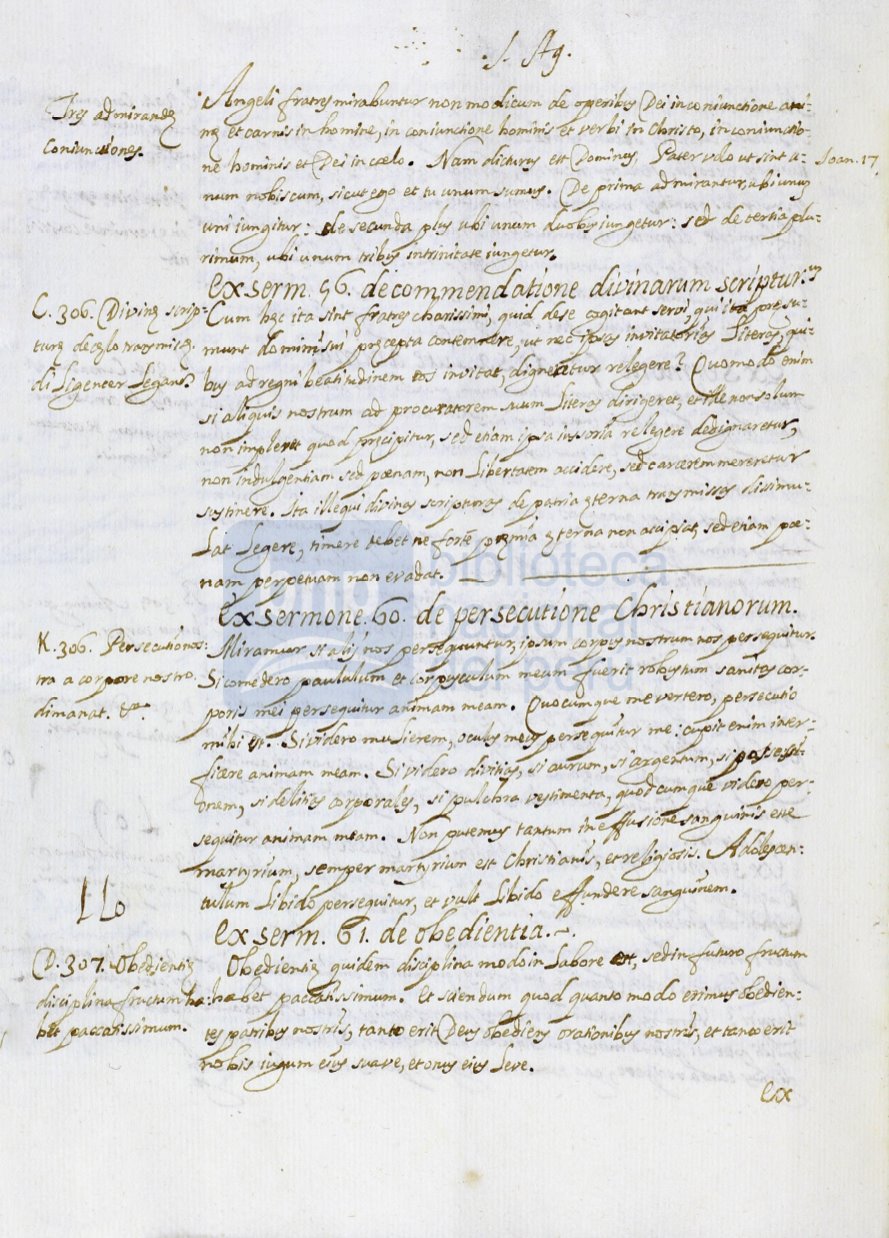 .S. Ag.
Tres admirandę
Coniunctiones.
Angeli fratres mirabuntur non modicum de operibus Dei in coniunctione ani-
mę et carnis in homine, in coniunctione hominis et verbi in Christo, in coniunctio-
ne hominis et Dei in cælo. Nam dicturus est Dominus, Pater volo ut sint u-
Ioan. 17.
num nobiscum, sicut ego et tu unum sumus. De prima admirantur, ubi unus
uni iungitur: de secunda plus ubi unum duobus iungetur: sed de tertia plu-
rimum, ubi unum tribus in trinitate iungetur.
Ex serm. 56. de commendatione divinarum scriptur.um
C. 306. Divinę scrip-
turę de cęlo transmissę
diligenter legantur
Cum hęc ita sint fratres charissimi, quid de se cogitant servi, qui ita pręsu-
munt domini sui pręcepta contemnere, ut nec ipsas invitatorias Literas, qui-
bus ad regni beatitudinem eos invitat, dignentur relegere? Quomodo enim
si aliquis nostrum ad procuratorem suum Literas dirigeret, et ille non solum
non impleret quod pręcipitur, sed etiam ipsa iussoria relegere dedignaretur,
non indulgentiam sed pœnam, non Libertatem accidere, sed carcerem mereretur
sustinere. Ita ille qui divinas scripturas de patria ęterna transmissas dissimu-
Lat Legere, timere debet ne forte pręmia ęterna non accipiat, sed etiam pœ-
nam perpetuam non evadat.
Ex sermone. 60. de persecutione Christianorum.
K. 306. Persecutio nos-
tra a corpore nostro
dimanat. &a
Miramur si alij nos persequuntur, ipsum corpus nostrum nos persequitur.
Si comedero paululum et corpusculum meum fuerit robustum sanitas cor-
poris mei persequitur animam meam. Quocumque me vertero, persecutio
mihi est. Si videro mulierem, oculus meus persequitur me: cupit enim inter-
ficere animam meam. Si videro divitias, si aurum, si argentum, si possessi-
onem, si delitias corporales, si pulchra vestimenta, quodcumque videro per-
sequitur animam meam. Non putemus tantum in effusione sanguinis esse
martyrium, semper martyrium est Christianis, et religiosis. Adolescen-
tulum Libido persequitur, et vult Libido effundere sanguinem.
LLo
Ex serm. 61. de obedientia.
D. 307. Obedientię
disciplina fructum ha-
bet paccatissimum.
Obedientię quidem disciplina modo in Labore est, sed in futuro fructum
habet paccatissimum. Et sciendum quod quanto modo erimus obedien-
tes patribus nostris, tanto erit Deus obediens orationibus nostris, et tanto erit
nobis iugum eius suave, et onus eius Leve.
Ex
biblioteca
nacional
del perú